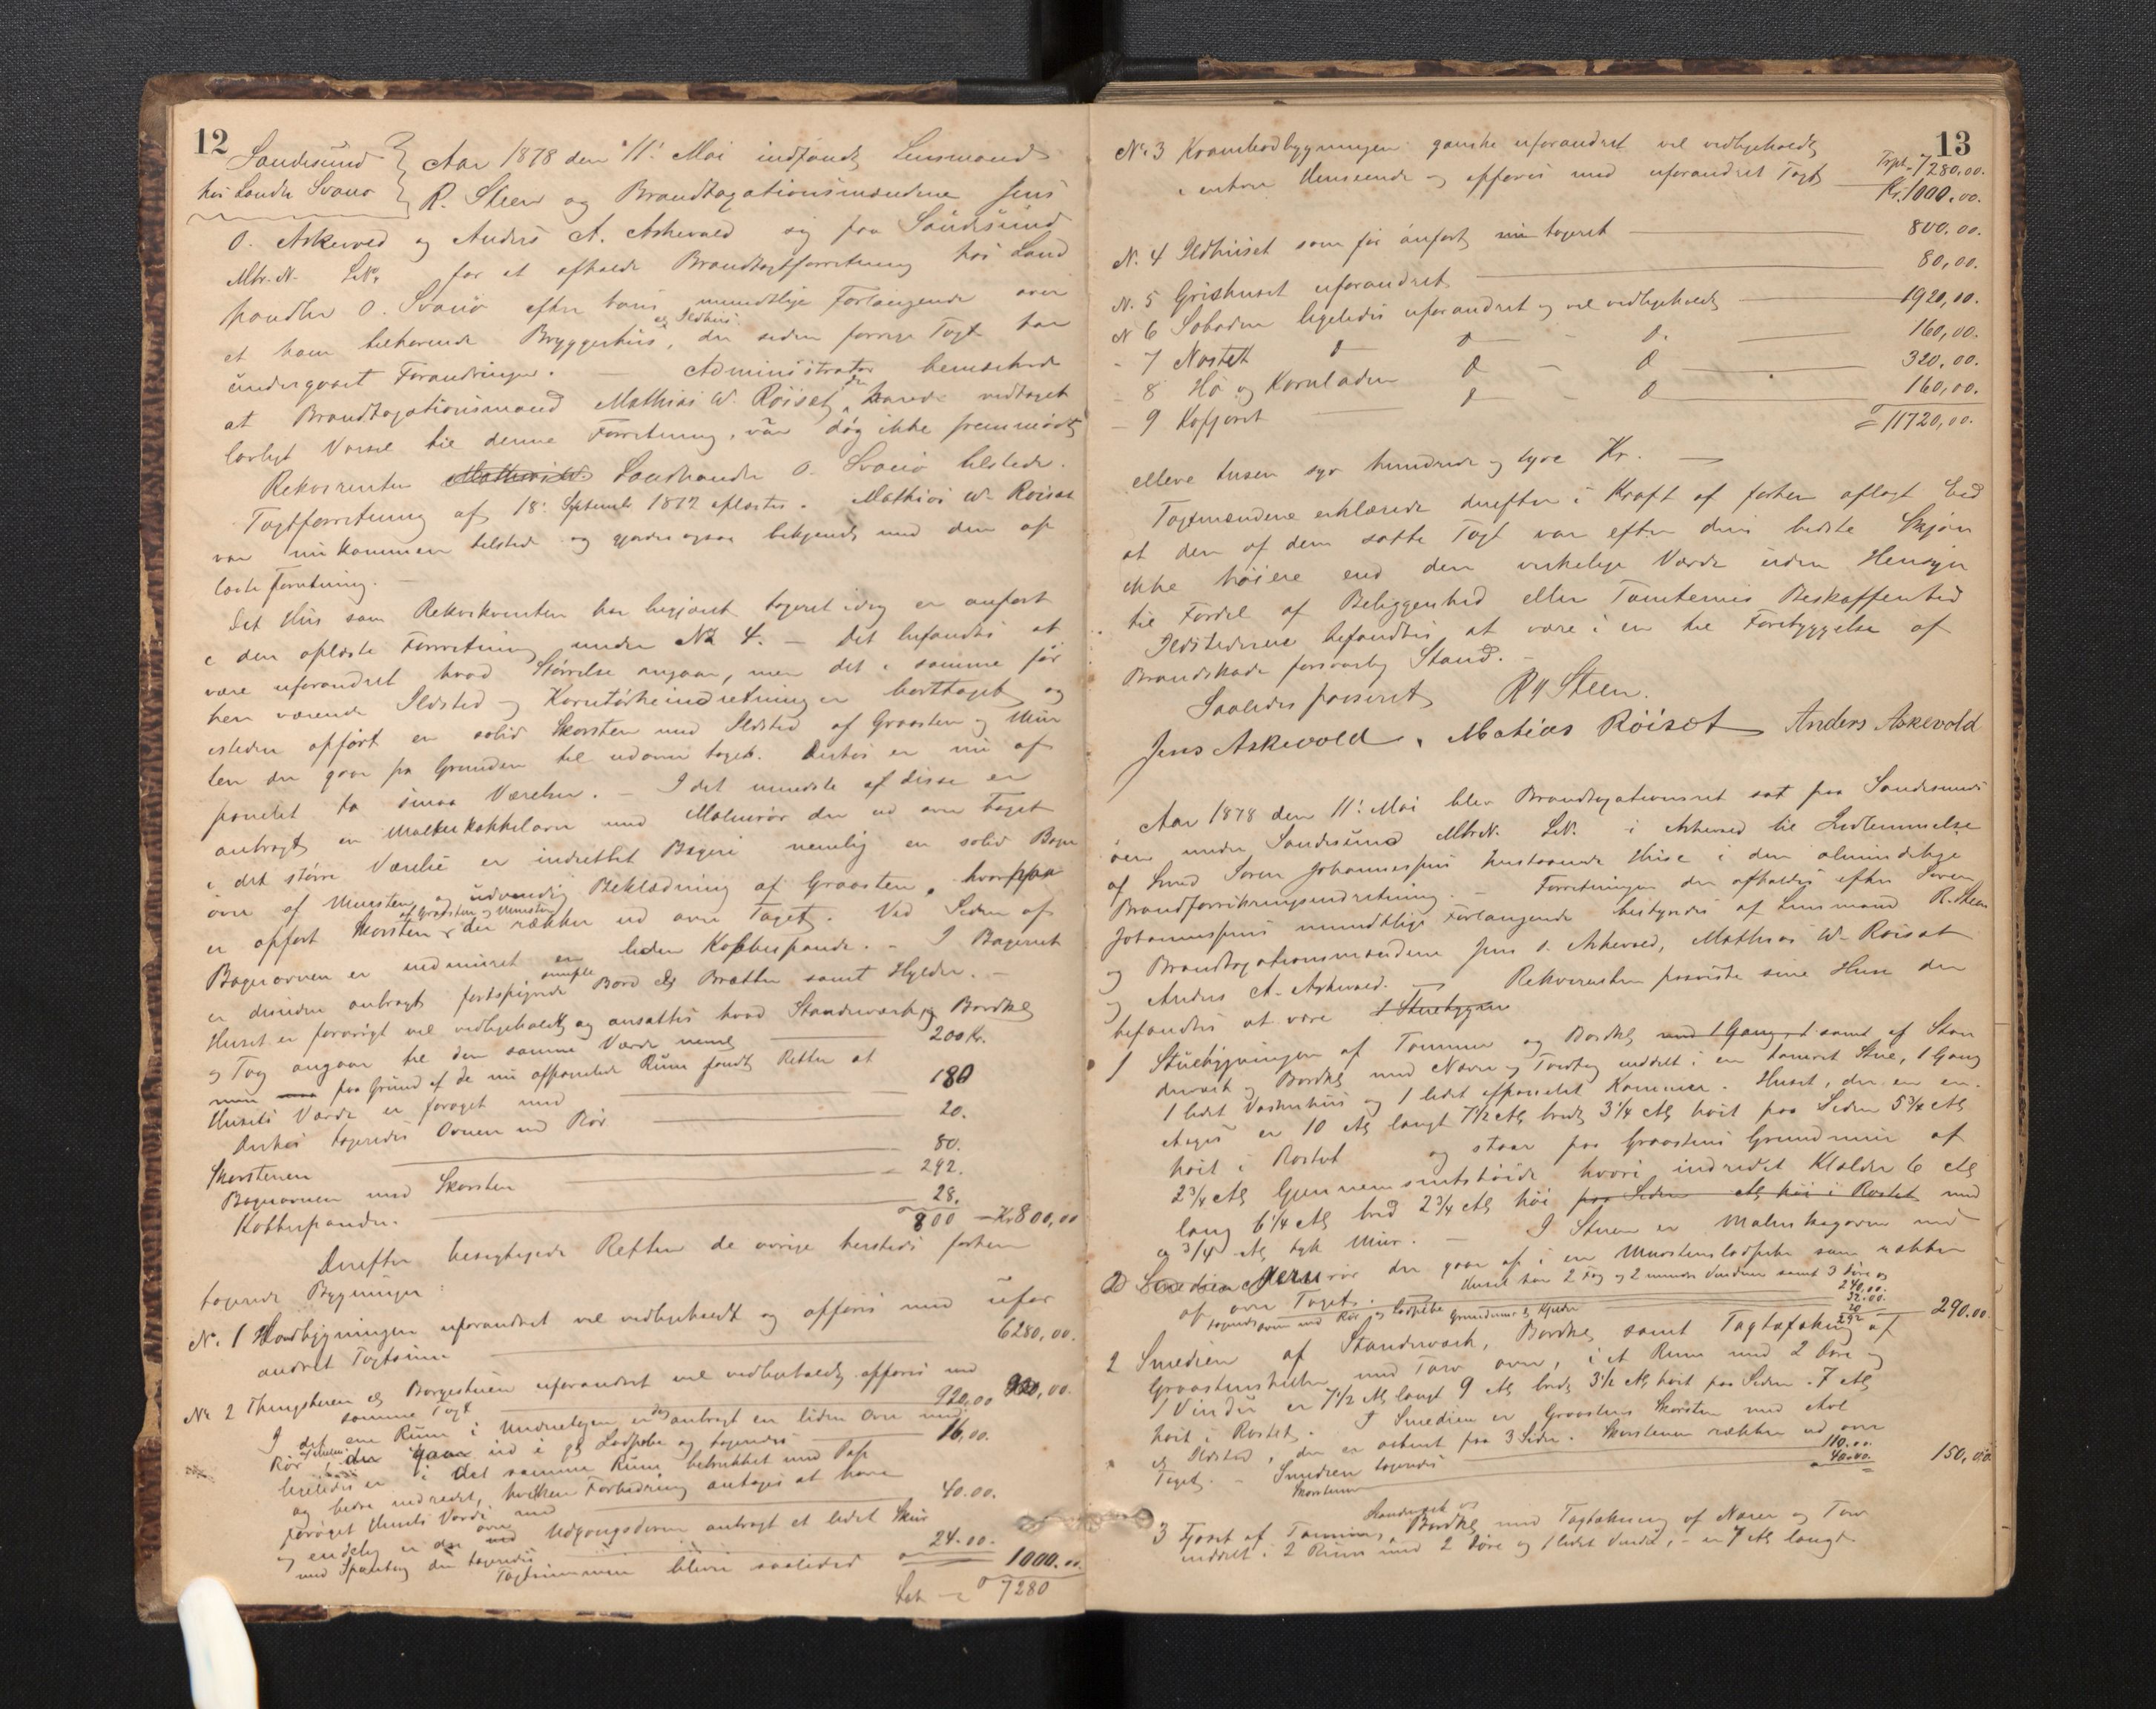 12
Sandesund
hos Landh Svanø
Aar 1878 den 11' Mai indfandt Lensmand
R. Steen og Brandtaxationsmændene Jens
O. Askevold og Anders A. Askevold sig paa Sandesund
Mtr. N. LN. for at afholde Brandtaxtforretning hos Land
handler O. Svanø efter hans mundtlige Forlangende over
et ham tilhørende Bryggerhus, og Ildhus der siden forrige Taxt har
undergaaet Forandringer. — Administrator bemærkede
at Brandtaxationsmand Mathias W. Röiset, der havde vedtaget
lovligt Varsel til denne Forretning, var dog ikke fremmødt
Rekvirenten Mathias W. Landhandler O. Svanø tilstede.
Taxtforretning af 18' September 1872 oplæstes. Mathias W. Röiset
var nu kommen tilstede og gjordes ogsaa bekjendt med den op
læste Forretning. —
Det Hus som Rekvirenten har begjært taxeret idag er anført
i den oplæste Forretning under No 4. — Det befandtes at
være uforandret hvad Størrelse angaar, men det i samme før
hen værende Ildsted og Korntørkeindretning er borttaget og
istedet opført en solid Skorsten med Ildsted af Graasten og Mur
sten der gaar fra Grunden til udover taget. Desuden er nu af
panelet to smaa Værelser. — I det mindste af disse er
anbragt en Kakkelovn med Rør der ud over Taget
i det større Værelse er indrettet Bageri nemlig en solid Bager
ovn af Mursten og udvendig Beklædning af Graasten, hvorpaa
er opført Skorsten af Graasten og Mursten der rækker ud over Taget. Ved Siden af
Bagerovnen er indmuret en liden Kobberpande. — I Bageriet
er desuden anbragt simple Bord og Brætter samt Hylder. —
Huset er forøvrigt vel vedligeholdt og ansattes hvad Standerværk og Bordkl
og Tag angaar til den samme Værdi nemlig 200 Kr.
men paa Grund af de nu afpanelede Rum fandt Retten at
Husets Værdi er forøget med 180
Desuden taxeredes Ovnen med Rør 20.
Skorstenen 80.
Bagerovnen med Skorsten 292.
Kobberpanden 28.
800 — Kr 800,00
Derefter besigtigede Retten de øvrige hersteds forhen
taxerede Bygninger:
N. 1 Hovedbygningen uforandret vel vedligeholdt og opføres med ufor
andret Taxtsum 6280,00.
No 2 Thingstuen og Borgestuen uforandret vel vedligeholdt opføres med
samme Taxt 920,00 920,00.
I det ene Rum i Underetagen er anbragt en liden Ovn med
Rør der gaar ud i Ladpibe og taxeredes 16,00.
ligeledes er i det samme Rum betrukket med Pap
og bedre indredet, hvilken Forbedring antages at have
forøget Husets Værdi med 40.00.
og endelig er der over Udgangsdøren anbragt et lidet Skur
med Spontag der taxeredes 24.00.
Taxtsummen bliver saaledes 1000.00.
Lat 7280
13
No 3 Krambodbygningen ganske uforandret vel vedligeholdt
i enhver Henseende og opføres med uforandret Taxt Trpt. 7280,00.
Kr. 1000.00.
N. 4 Ildhuset som før anført nu taxeret 800.00.
N. 5 Grishuset uforandret 80,00.
N 6 Søboden ligeledes uforandret og vel vedligeholdt 1920,00.
- 7 Nøstet 160,00.
- 8 Hø og Kornladen 320.00.
- 9 Kofjøset 160,00.
11720,00.
elleve tusen syv hundrede og tyve Kr. —
Taxtmændene erklærede derefter i Kraft af forhen aflagt Eed
at den af dem satte Taxt var efter deres bedste Skjøn
ikke höiere end den virkelige Værdi uden Hensyn
til Fordel af Beliggenhed eller Tomternes Beskaffenhed
Ildstederne befandtes at være i en til Forebyggelse af
Brandskade forsvarlig Stand. —
Saaledes passeret RN Steen.
Jens Askevold. Matias Röiset Anders Askevold
Aar 1878 den 11' Mai blev Brandtaxationsret sat paa Sandesunds
øen under Sandesund Mtr.N. LN. i Askevold til Indlemmelse
af Smed Søren Johannesens Huse i den almindelige
Brandforsikringsindretning. — Forretningen der afholdes efter Søren
Johannesens mundtlige Forlangende bestyredes af Lensmand R. Steen
og Brandtaxationsmændene Jens O. Askevold, Mathias W. Röiset
og Anders A. Askevold. — Rekvirenten paaviste sine Huse der
befandtes at være 1 Stuebygn
1 Stuebygningen af Tømmer og Bordkl med 1 Gang samt af Stan
derværk og Bordkl med Næver og Torvtag inddelt i en tømret Stue, 1 Gang
1 lidet Vaskerhus og 1 lidet afpanelet Kammer. Huset, der er en
Etages er 10 Al langt 7½ Al bredt 3¼ Al höit paa Siden 5¾ Al
höit i Røstet og staar paa Graastens Grundmur af
2¾ Al Gjennemsnitshöide hvori indredet Kjælder 6 Al
lang 6¼ Al bred 2¾ Al höi paa Siden Al höi i Røstet med
a ¾ Al tyk Mur. — I Stuen er Kakelovn med
2 Smedien Jernrør der gaar op i en Murstensladpibe som rækker
op over Taget. Huset har 2 Fag og 2 mindre Vinduer samt 3 Døre og
taxeredes 240,00.
Ovn med Rør og Ladpibe Grundmur og Kjelder 32.00.
20
292 290.00.
2 Smedien af Standerværk, Bordkl samt Tagtækning af
Graastensheller med Torv over, i et Rum med 2 Døre og
1 Vindu er 7½ Al langt 9 Al bredt 3½ Al höit paa Siden. 7 Al
höit i Røstet. I Smedien er Graastens Skorsten med Avl
og Ildsted, der er aabent paa 3 Sider. Skorstenen rækker ud over
Taget. — Smedien taxeredes 110.00.
Skorstenen 40.00. 150,00.
3 Fjøset af Tømmer, Standerværk og Bordkl med Tagtækning af Næver og Torv
inddelt i 2 Rum med 2 Døre og 1 lidet Vindu, — er 7 Al langt